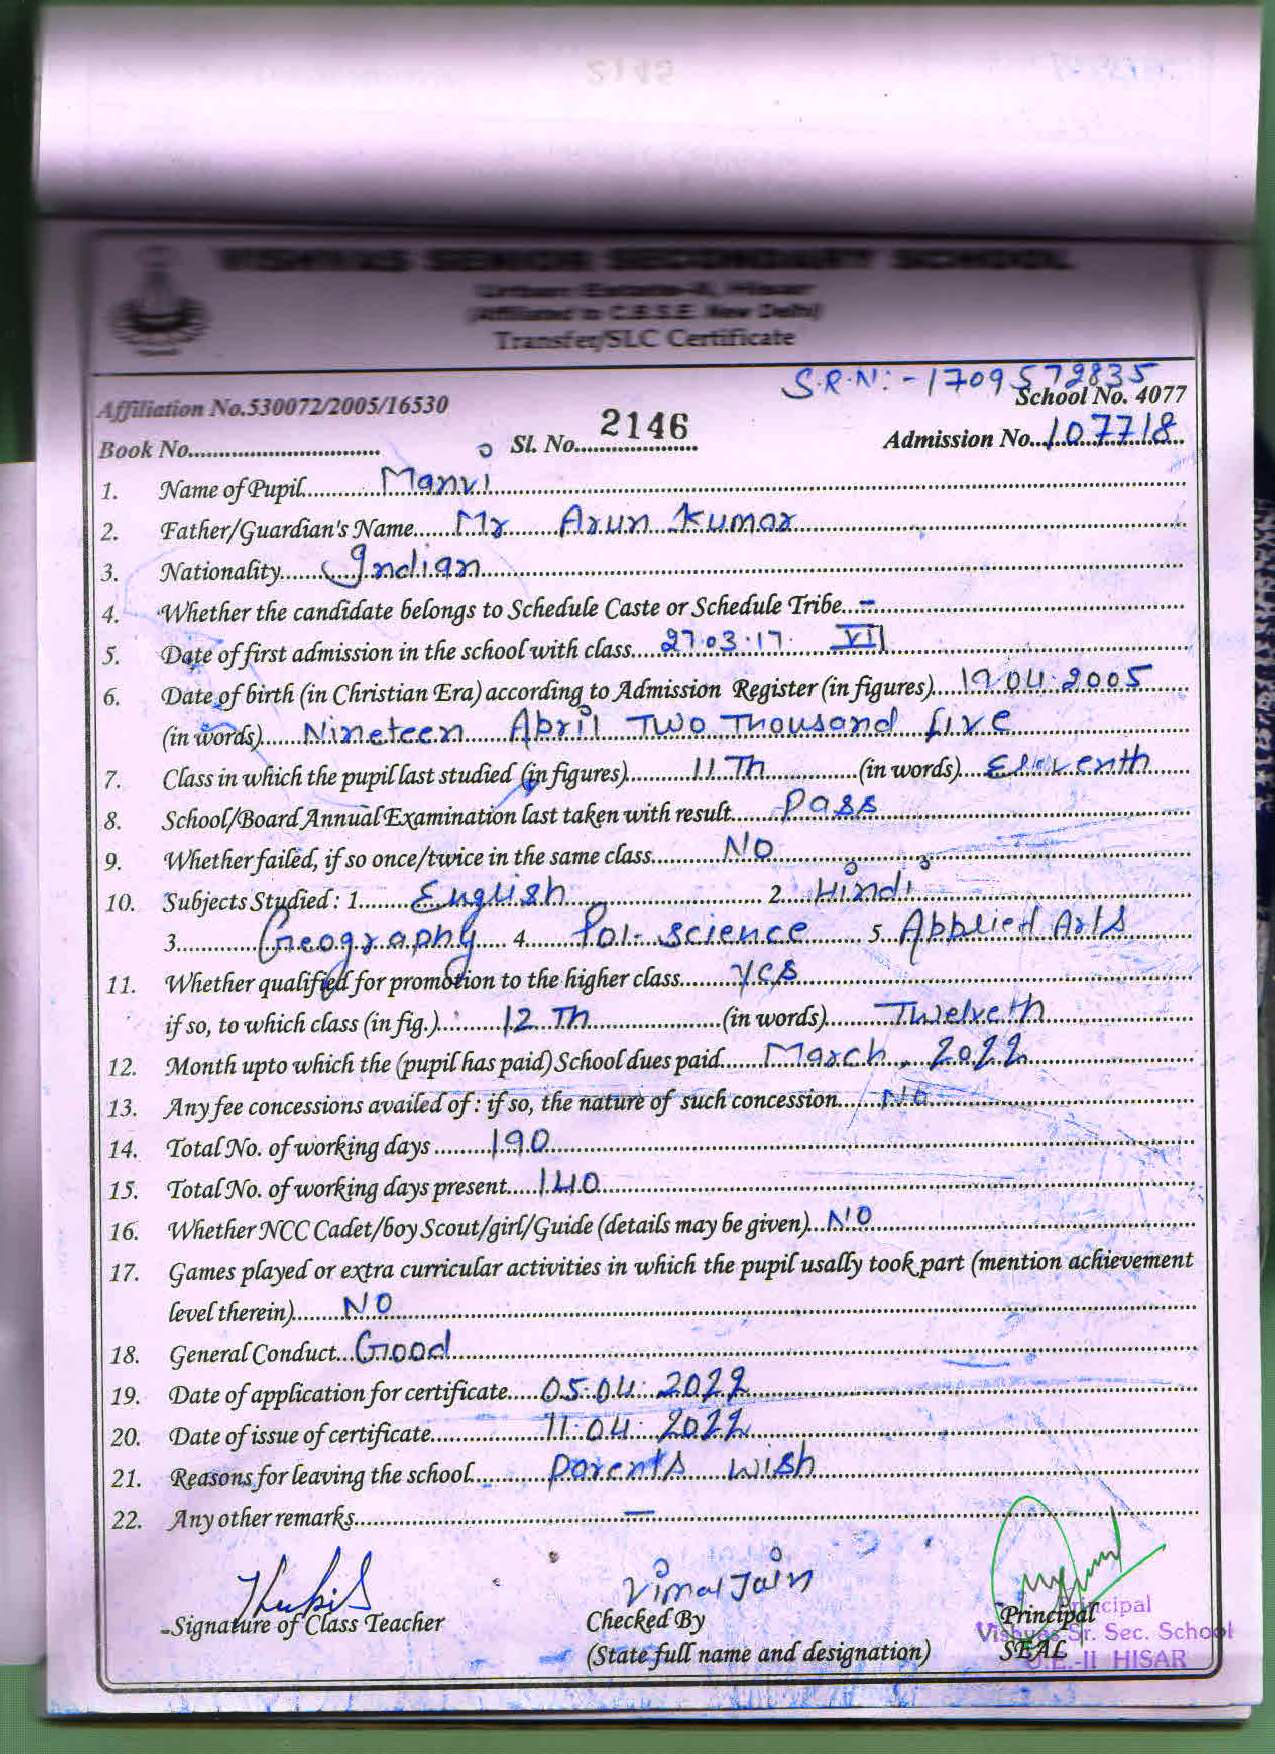 2143
VISHVAS SENIOR SECONDARY SCHOOL
Urban Estate-II, Hisar
(Affiliated to C.B.S.E. New Delhi)
Transfer/SLC Certificate
S.R.N:-1709572835
Affiliation No.530072/2005/16530 School No. 4077
Book No. Sl. No. 2146 Admission No. 107718
1. Name of Pupil Manvi
2. Father/Guardian's Name Mr Arun Kumar
3. Nationality Indian
4. Whether the candidate belongs to Schedule Caste or Schedule Tribe -
5. Date of first admission in the school with class 27.03.17. VII
6. Date of birth (in Christian Era) according to Admission Register (in figures) 19.04.2005
(in words) Nineteen April Two Thousand five
7. Class in which the pupil last studied (in figures) 11 Th (in words) Eleventh
8. School/Board Annual Examination last taken with result Pass
9. Whether failed, if so once/twice in the same class NO
10. Subjects Studied : 1. English 2. Hindi
3. Geography 4. Pol. science 5. Applied Arts
11. Whether qualified for promotion to the higher class yes
if so, to which class (in fig.) 12 Th (in words) Twelveth
12. Month upto which the (pupil has paid) School dues paid March, 2022
13. Any fee concessions availed of : if so, the nature of such concession No
14. Total No. of working days 190
15. Total No. of working days present 140
16. Whether NCC Cadet/boy Scout/girl/Guide (details may be given) NO
17. Games played or extra curricular activities in which the pupil usally took part (mention achievement
level therein) NO
18. General Conduct Good
19. Date of application for certificate 05.04.2022
20. Date of issue of certificate 11.04.2022
21. Reasons for leaving the school Parents wish
22. Any other remarks —
Vimal Jain
Signature of Class Teacher Checked By Principal
(State full name and designation) SEAL
Principal
Vishvas Sr. Sec. School
U.E.-II HISAR